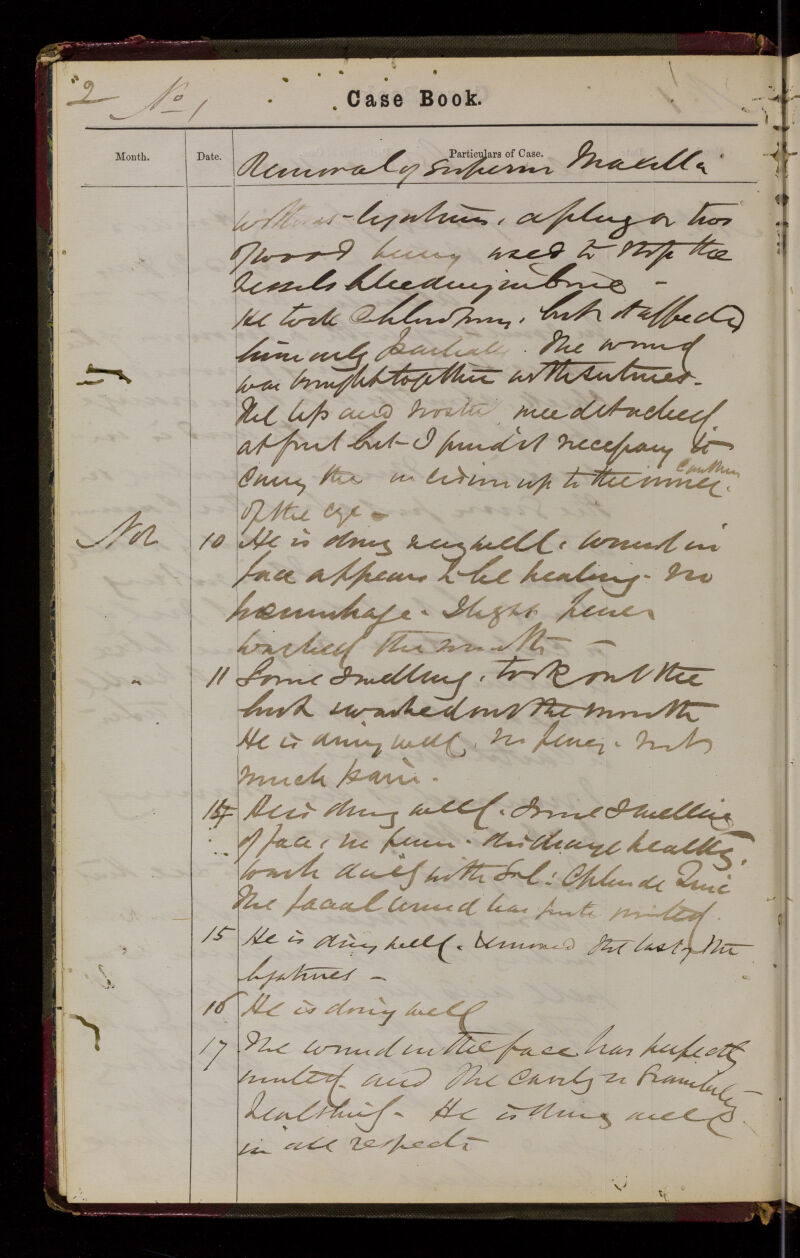 2 No 1
Case Book.
Month. Date. Particulars of Case.
Removal of Superior Maxilla
ligatures, a plug or two
of wood being used to stop the
vessels bleeding in bone -
He took Chloroform, but it affected
him only partially. The wound
was brought together with sutures.
The lip and nostril were detached
at first but I found it necessary to
carry the incision up to the inner canthus
of the eye -
Nov 10 He is doing very well, wound in
face appears to be healing. no
hæmorrhage. Slight fever
washed the mouth -
" 11 Some swelling, took out the
lint & washed out the mouth
He is doing well, no fever. not
much pain.
He is doing well. Some swelling
of face, no fever. discharge healthy.
wash daily with Sol: Chloride Zinc
The facial wound has quite united.
15 He is doing well. Removed the last of the
ligatures -
16 He is doing well
17 The wound in the face has perfectly
united and the cavity is granulating
healthily. He is doing well
in all respects